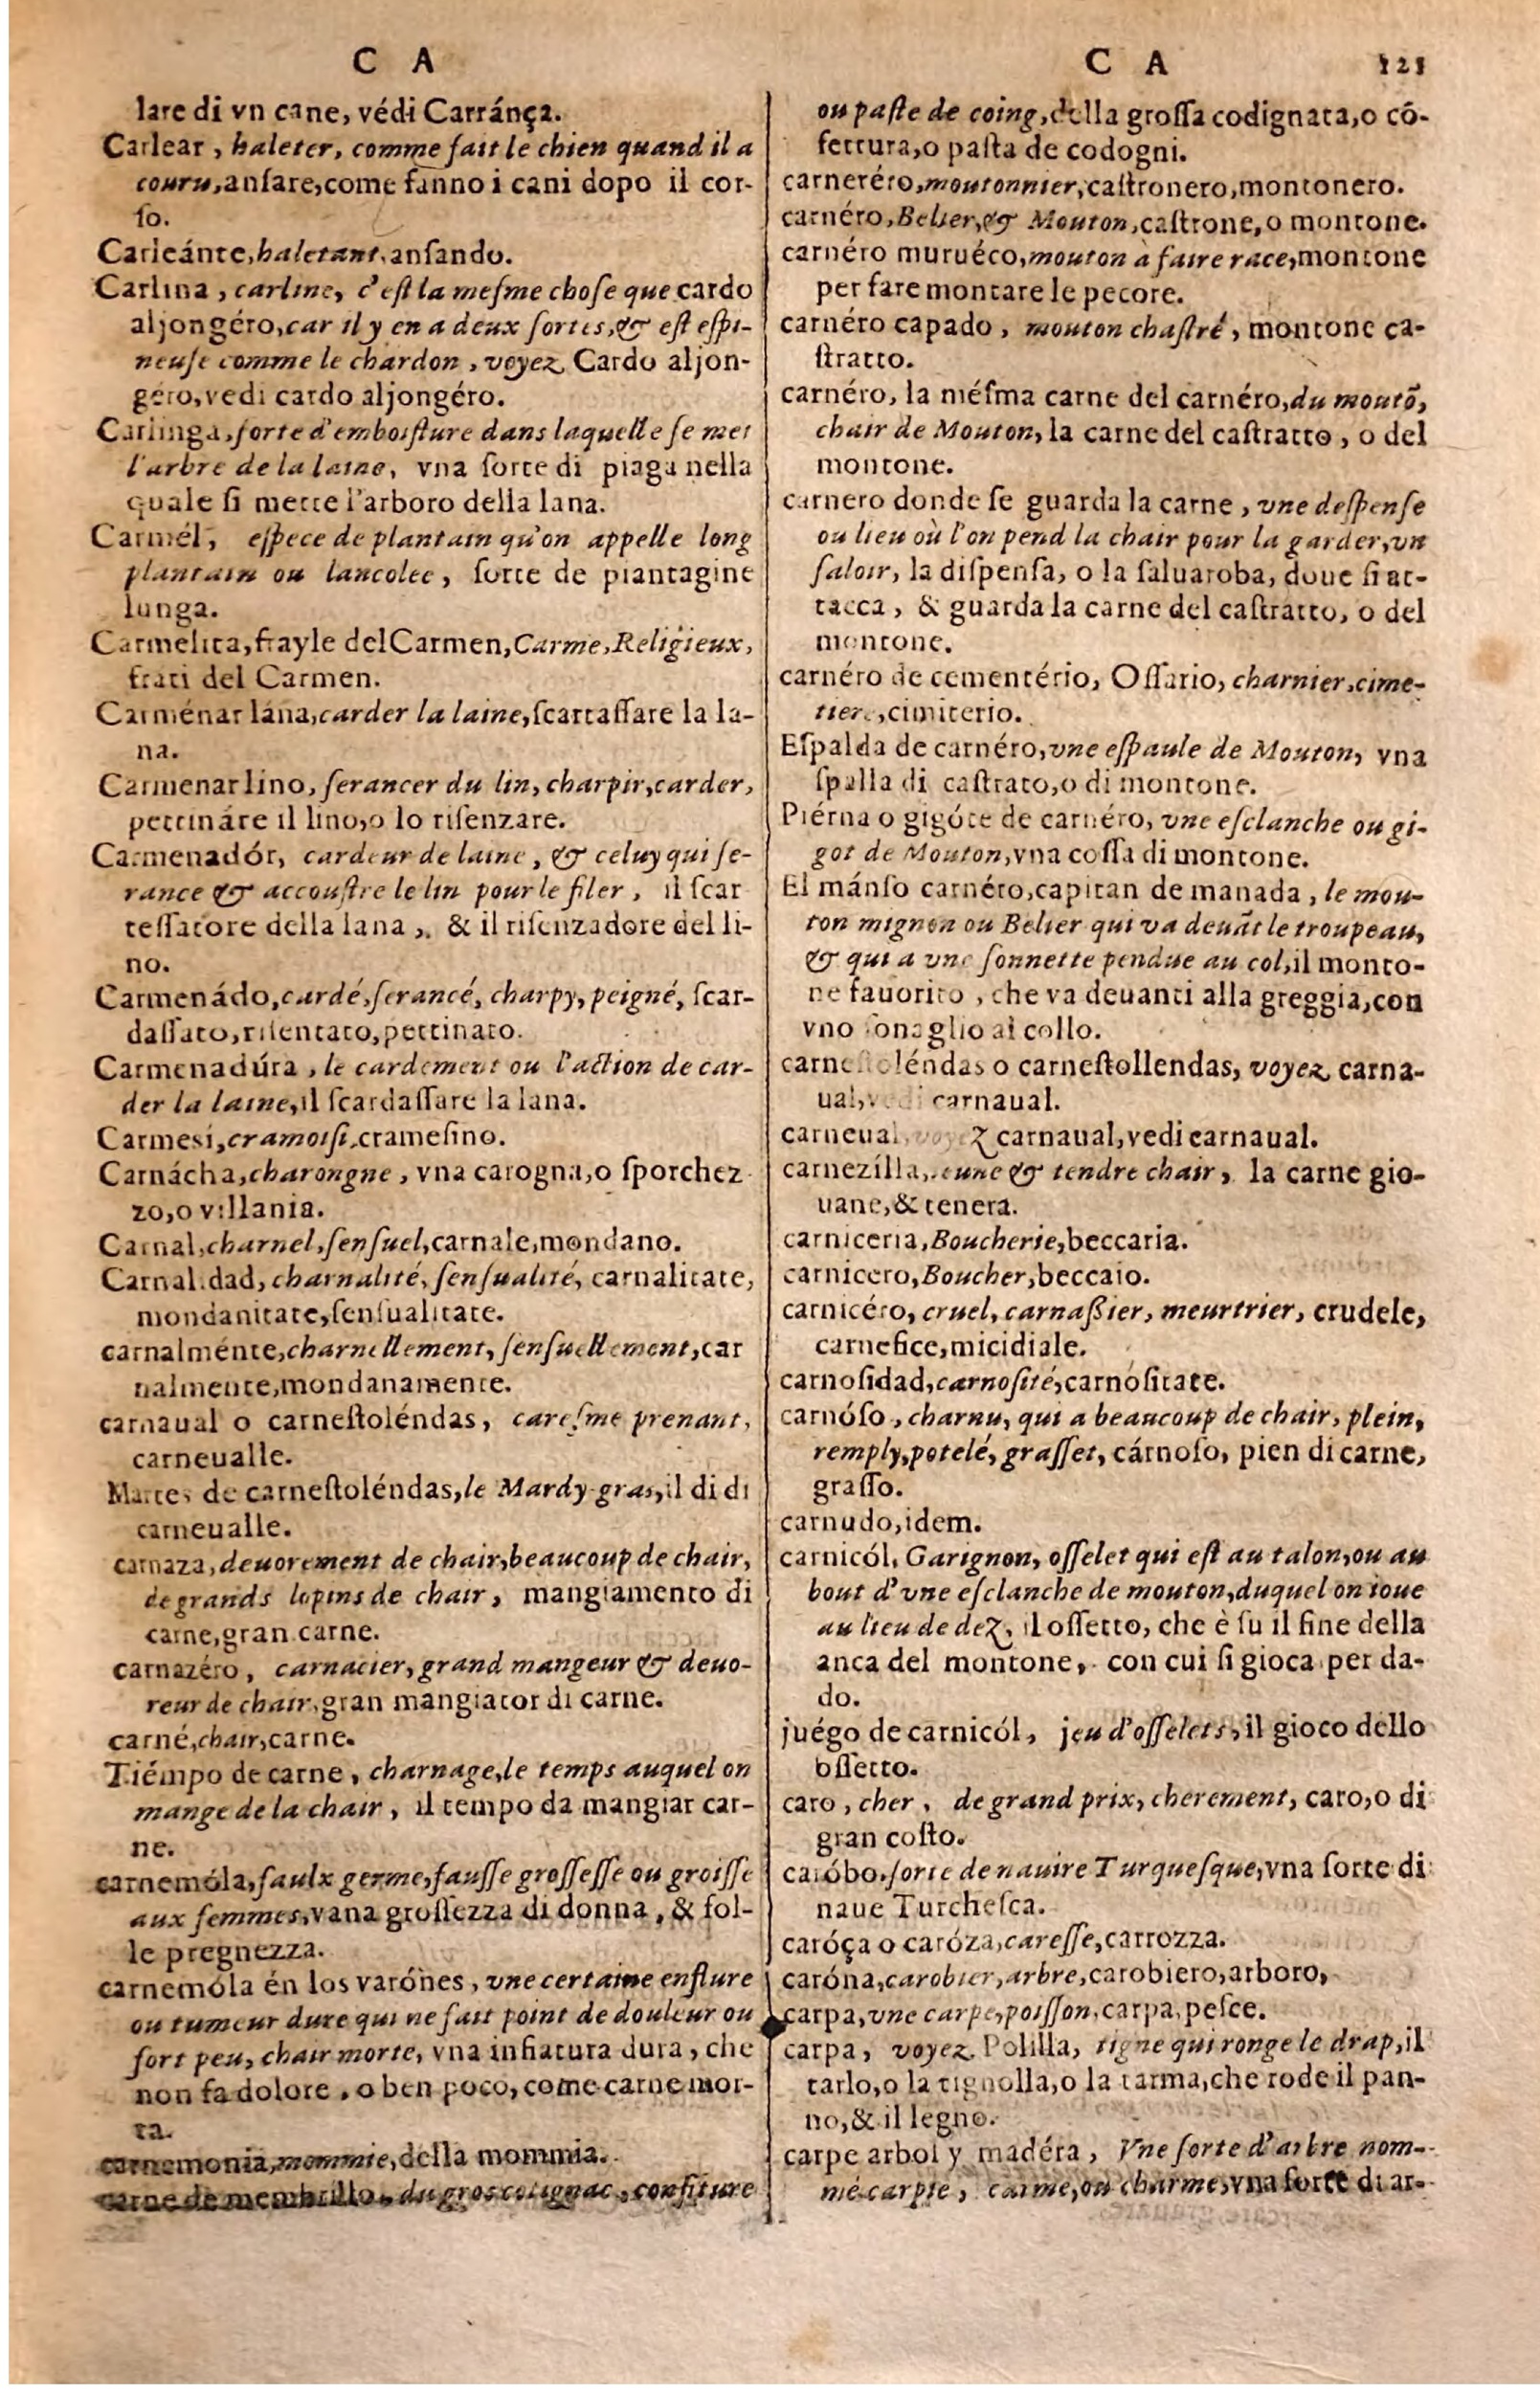 C A
lare di vn cane, védi Carránça.
Carlear, haleter, comme fait le chien quand il a
couru, anſare, come fanno i cani dopo il cor-
ſo.
Carleánte, haletant, anſando.
Carlina, carline, c'eſt la meſme choſe que cardo
aljongéro, car il y en a deux ſortes, & eſt eſpi-
neuſe comme le chardon, voyez Cardo aljon-
géro, vedi cardo aljongéro.
Carlinga, ſorte d'emboiſture dans laquelle ſe met
l'arbre de la laine, vna ſorte di piaga nella
quale ſi mette l'arboro della lana.
Carmél, eſpece de plantain qu'on appelle long
plantain ou lancolee, ſorte de piantagine
lunga.
Carmelita, frayle del Carmen, Carme, Religieux,
frati del Carmen.
Carménar lána, carder la laine, ſcartaſſare la la-
na.
Carmenar lino, ſerancer du lin, charpir, carder,
pettináre il lino, o lo riſenzare.
Carmenadór, cardeur de laine, & celuy qui ſe-
rance & accouſtre le lin pour le filer, il ſcar
teſſatore della lana, & il riſenzadore del li-
no.
Carmenádo, cardé, ſerancé, charpy, peigné, ſcar-
daſſato, riſentato, pettinato.
Carmenadúra, le cardement ou l'action de car-
der la laine, il ſcardaſſare la lana.
Carmesí, cramoiſi, crameſino.
Carnácha, charongne, vna carogna, o ſporchez
zo, o villania.
Carnal, charnel, ſenſuel, carnale, mondano.
Carnalidad, charnalité, ſenſualité, carnalitate,
mondanitate, ſenſualitate.
carnalménte, charnellement, ſenſuellement, car
nalmente, mondanamente.
carnaual o carneſtoléndas, careſme prenant,
carneualle.
Martes de carneſtoléndas, le Mardy-gras, il di di
carneualle.
carnaza, deuorement de chair, beaucoup de chair,
de grands lopins de chair, mangiamento di
carne, gran carne.
carnazéro, carnacier, grand mangeur & deuo-
reur de chair, gran mangiator di carne.
carné, chair, carne.
Tiémpo de carne, charnage, le temps auquel on
mange de la chair, il tempo da mangiar car-
ne.
carnemóla, faulx germe, fauſſe groſſeſſe ou groiſſe
aux femmes, vana groſſezza di donna, & fol-
le pregnezza.
carnemóla én los varónes, vne certaine enflure
ou tumeur dure qui ne fait point de douleur ou
fort peu, chair morte, vna infiatura dura, che
non fa dolore, o ben poco, come carne mor-
ta.
carnemonia, mommie, della mommia.
carne de membrillo, du gros cotignac, confiture
C A 121
ou paſte de coing, della groſſa codignata, o cō-
fettura, o paſta de codogni.
carneréro, moutonnier, caſtronero, montonero.
carnéro, Belier, & Mouton, caſtrone, o montone.
carnéro muruéco, mouton à faire race, montone
per fare montare le pecore.
carnéro capado, mouton chaſtré, montone ca-
ſtratto.
carnéro, la méſma carne del carnéro, du moutō,
chair de Mouton, la carne del caſtratto, o del
montone.
carnero donde ſe guarda la carne, vne deſpenſe
ou lieu où l'on pend la chair pour la garder, vn
ſaloir, la diſpenſa, o la ſaluaroba, doue ſi at-
tacca, & guarda la carne del caſtratto, o del
montone.
carnéro de cementério, Oſſario, charnier, cime-
tiere, cimiterio.
Eſpalda de carnéro, vne eſpaule de Mouton, vna
ſpalla di caſtrato, o di montone.
Piérna o gigóte de carnéro, vne eſclanche ou gi-
got de Mouton, vna coſſa di montone.
El mánſo carnéro, capitan de manada, le mou-
ton mignon ou Belier qui va deuāt le troupeau,
& qui a vne ſonnette pendue au col, il monto-
ne fauorito, che va deuanti alla greggia, con
vno ſonaglio al collo.
carneſtoléndas o carneſtollendas, voyez carna-
ual, vedi carnaual.
carneual, voyez carnaual, vedi carnaual.
carnezílla, ieune & tendre chair, la carne gio-
uane, & tenera.
carniceria, Boucherie, beccaria.
carnicero, Boucher, beccaio.
carnicéro, cruel, carnaßier, meurtrier, crudele,
carnefice, micidiale.
carnoſidad, carnoſité, carnóſitate.
carnóſo, charnu, qui a beaucoup de chair, plein,
remply, potelé, graſſet, cárnoſo, pien di carne,
graſſo.
carnudo, idem.
carnicól, Garignon, oſſelet qui eſt au talon, ou au
bout d'vne eſclanche de mouton, duquel on ioue
au lieu de dez, il oſſetto, che è ſu il fine della
anca del montone, con cui ſi gioca per da-
do.
juégo de carnicól, jeu d'oſſelets, il gioco dello
oſſetto.
caro, cher, de grand prix, cherement, caro, o di
gran coſto.
caróbo, ſorte de nauire Turqueſque, vna ſorte di
naue Turcheſca.
caróça o caróza, careſſe, carrozza.
caróna, carobier, arbre, carobiero, arboro,
carpa, vne carpe, poiſſon, carpa, peſce.
carpa, voyez Polilla, tigne qui ronge le drap, il
tarlo, o la tignolla, o la tarma, che rode il pan-
no, & il legno.
carpe arbol y madéra, Vne ſorte d'arbre nom-
mé carpie, carme, ou charme, vna ſorte di ar-